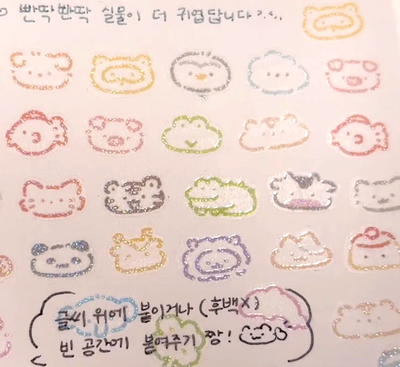 빤딱빤딱 실물이 더 귀엽답니다..
글씨 위에 붙이거나 (후백X)
빈 공간에 붙여주기 짱!